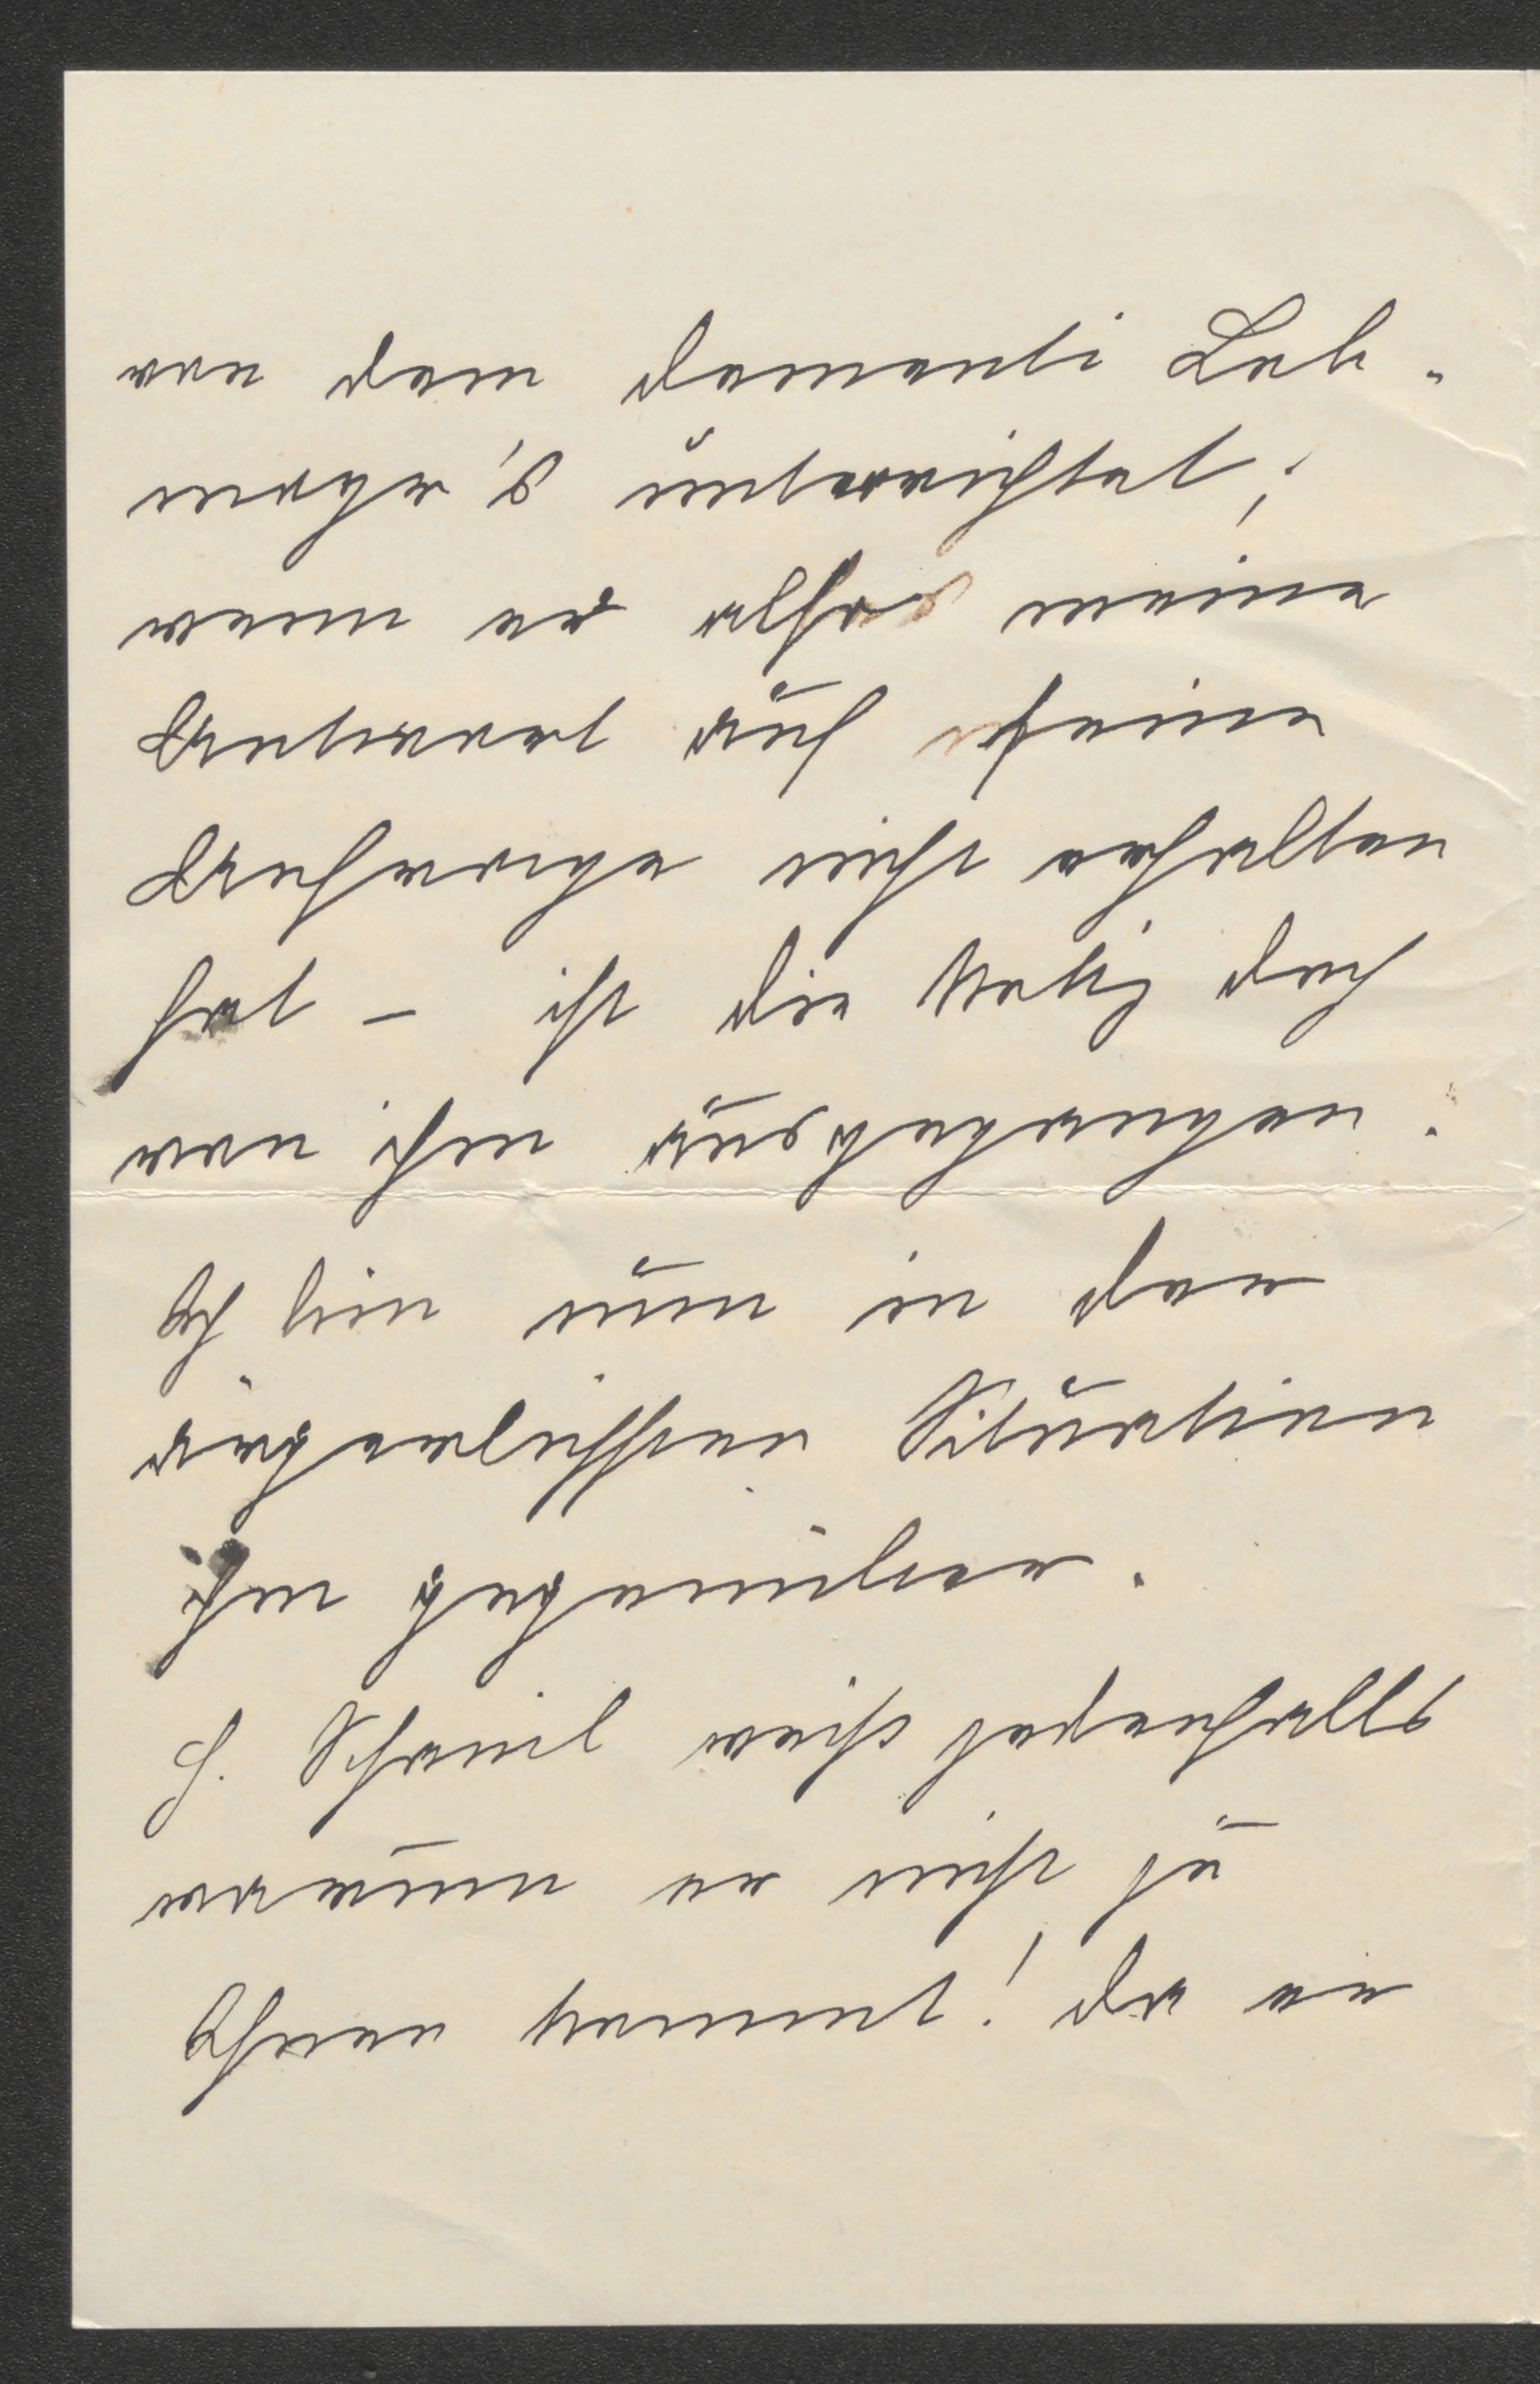 von dem dementi Leh-
mann's unterrichtet;
wenn er also meine
Antwort auf seine
Anfrage nicht erhalten
hat – ist die Notiz doch
von ihm ausgegangen.
Ich bin nun in der
ärgerlichsten Situation
ihm gegenüber.
H. Schweid weiss jedenfalls
warum er nicht zu
Ihnen kommt! da er